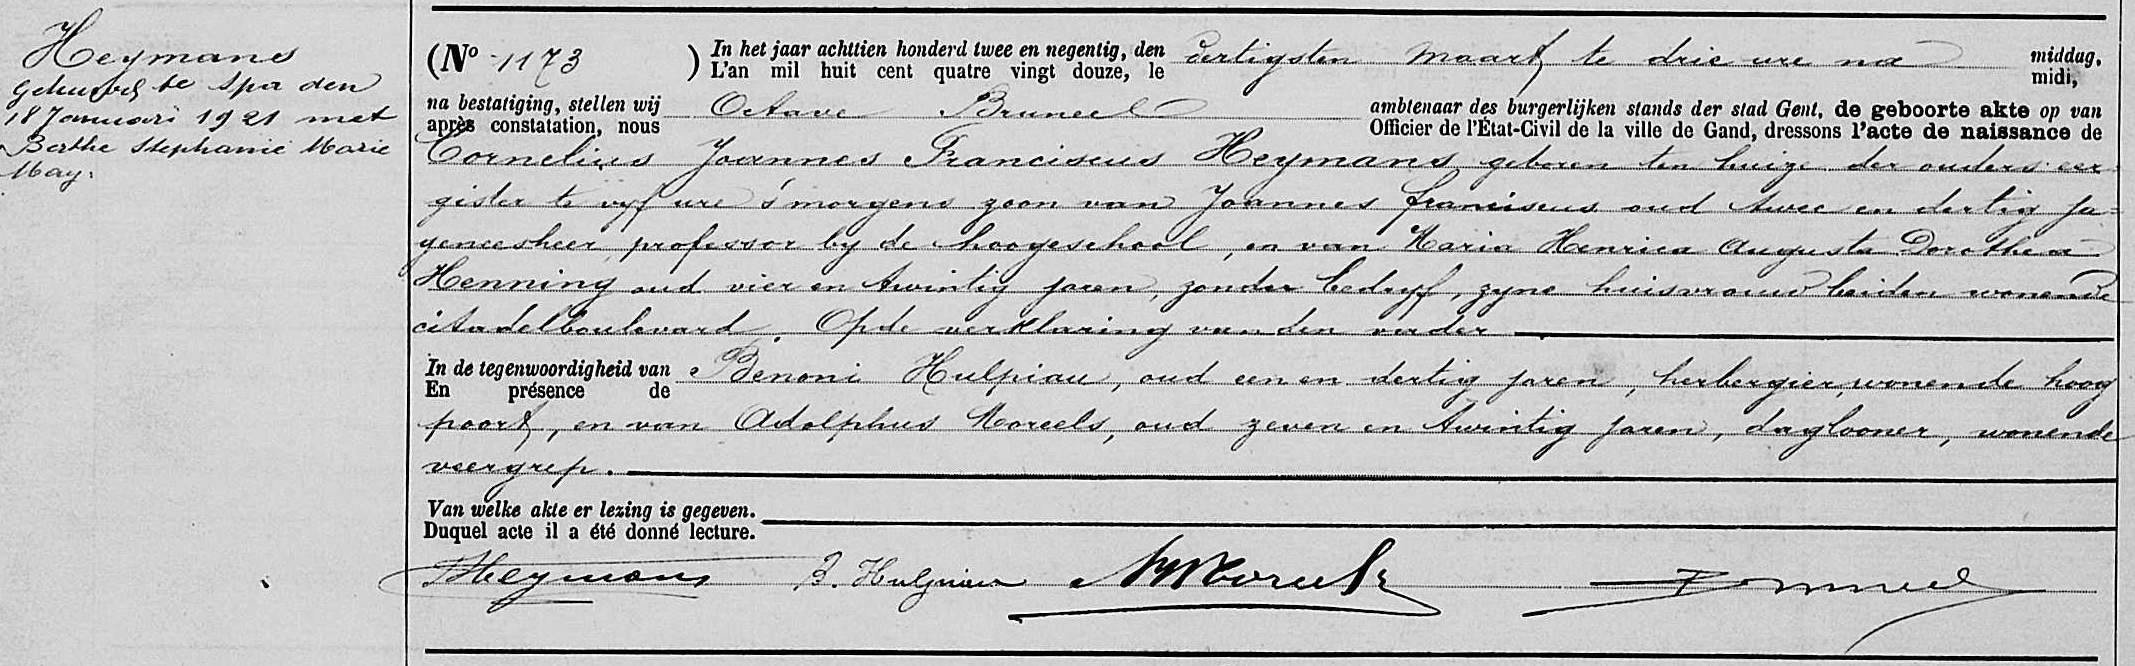 Heymans
gehuwd te Spa den
18 Januari 1921 met
Berthe Stephanie Marie
May.
(No 1173 ) In het jaar achttien honderd twee en negentig, den dertigsten Maart te drie ure na middag,
L'an mil huit cent quatre vingt douze, le midi,
na bestatiging, stellen wij Octave Bruneel ambtenaar des burgerlijken stands der stad Gent, de geboorte akte op van
après constatation, nous Officier de l'État-Civil de la ville de Gand, dressons l'acte de naissance de
Cornelius Joannes Franciscus Heymans geboren ten huize der ouders eer-
gister te vyf ure s'morgens zoon van Joannes franciscus oud twee en dertig ja=
geneesheer, professor by de hoogeschool, en van Maria Henrica Augusta Dorothea
Henning oud vier en twintig jaren, zonder bedryf, zyne huisvrouw beiden wonende
citadelboulevard. Op de verklaring van den vader
In de tegenwoordigheid van Benoni Hulpiau, oud een en dertig jaren, herbergier, wonende hoog
En présence de
poort, en van Adolphus Moreels, oud zeven en twintig jaren, daglooner, wonende
veergrep.
Van welke akte er lezing is gegeven.
Duquel acte il a été donné lecture.
Heymans B. Hulpiau Moreels Bruneel